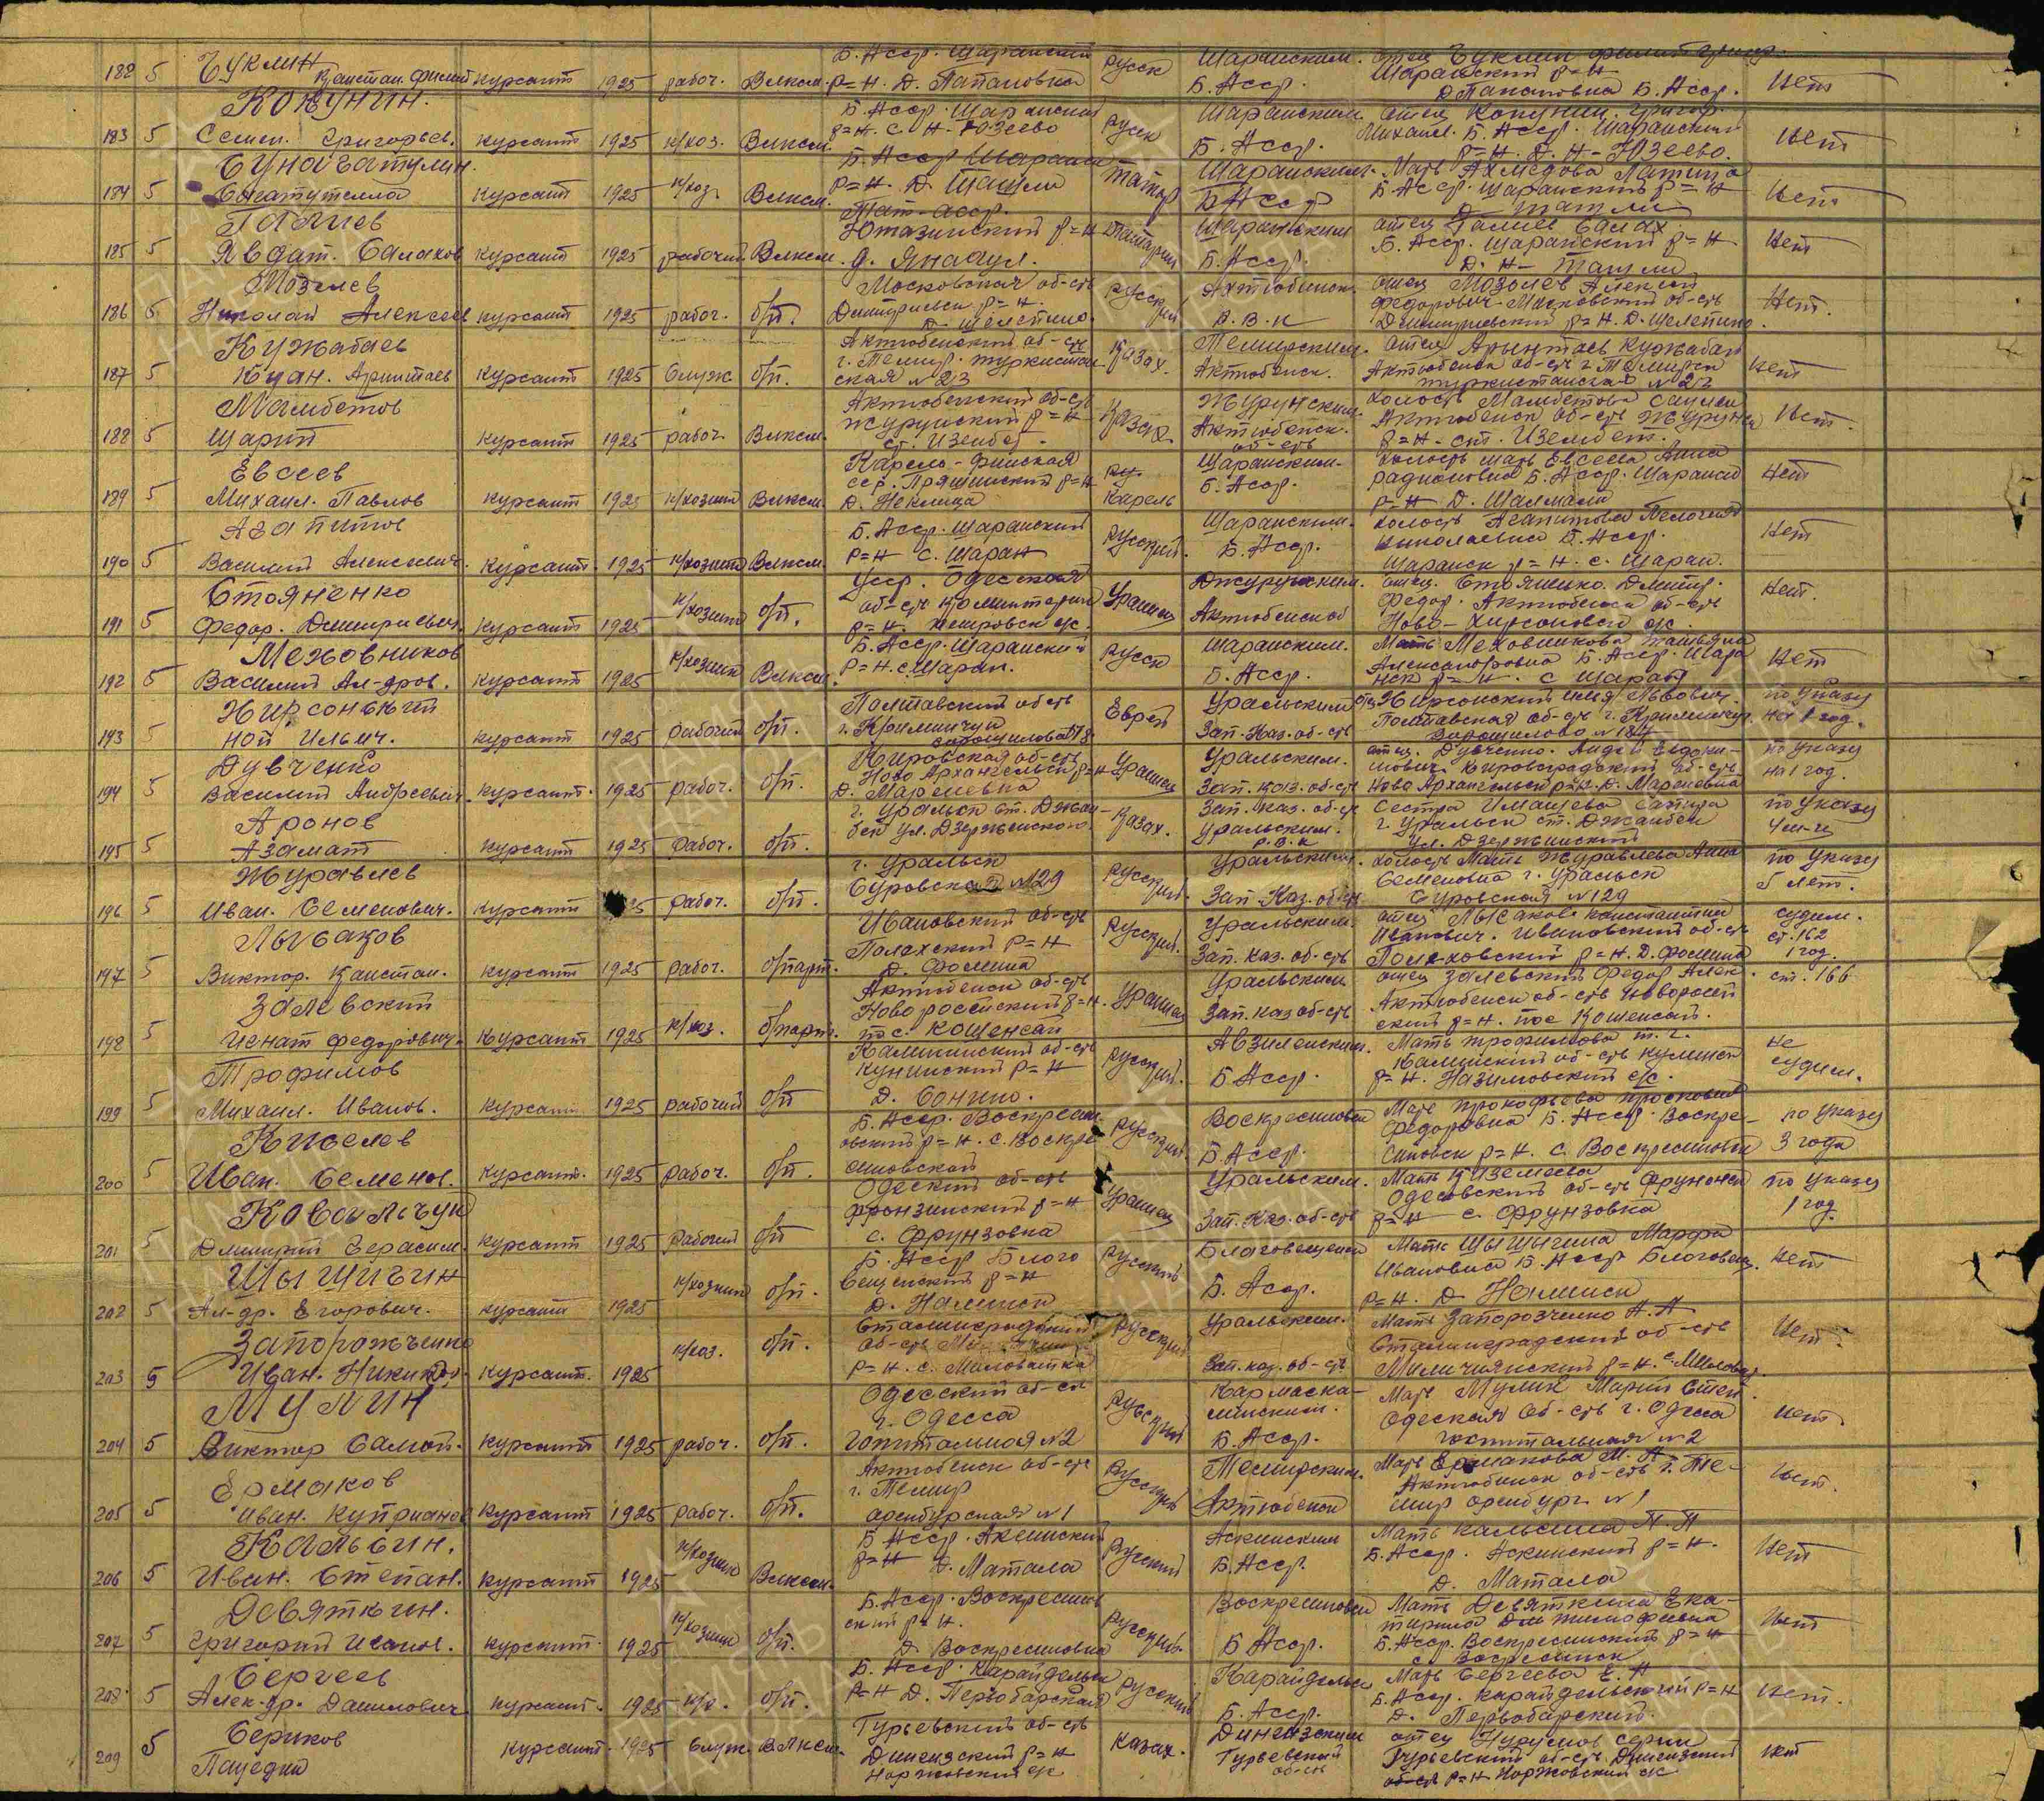 182 5 Букмин Констан. Филип курсант 1925 рабоч. Влксм. Б. Асср. Шаранский р=н. Д. Папановка Русск Шаранским. Б. Асср. отец Букмин Филип Шаранский р=н Д. Папановка Б. Асср. Нет
183 5 Конунин. Семен. Григорьев. курсант 1925 к/хоз. Влксм. Б. Асср. Шаранский р=н. с. Н-Юзеево Русск Шаранским. Б. Асср. отец Конунин. Григор. Михаил. Б. Асср. Шаранский р=н. Д. Н-Юзеево. Нет
184 5 Сунагатулин. курсант 1925 к/хоз. Влксм. Б. Асср Шаранск р=н. Д. Ташли татар Шаранским. Б Асср Мать Ахмедова Б. Асср. Шаранский р=н Д. Ташли Нет
185 5 Галиев Явдат. Салахов курсант 1925 рабочий Влксм. Тат-асср. Ютазинский р=н д. Янааул. татарин Шаранским Б. Асср. отец Галиев Салах Б. Асср. Шаранский р=н Д. Н-Ташли Нет
186 5 Мозолев Николай Алексеев курсант 1925 рабоч. б/п. Московская об-сть Дмитриевск р=н. Д. Щелепино. Русский Актюбинск. Р.В.К отец Мозолев Алексей Федорович. Московский об-сть Дмитриевский р=н. Д. Щелепино. Нет.
187 5 Кужабаев Куан. Арынтаев курсант 1925 Служ б/п. Актюбинский об-сть г. Темир. туркистанская №23 Казах. Темирским. Актюбинск. отец Арынтаев Кужабай Актюбинск об-сть г. Темирск туркистанская №23 Нет
188 5 Мамбетов Шарип курсант 1925 рабоч. Влксм. Актюбинский об-сть журунский р=н ст. Изембет. Казах Журунским. Актюбинск. об-сть холость Мамбетова Саулеи Актюбинск об-сть Журунск р=н. ст. Изембет. Нет.
189 5 Евсеев Михаил. Павлов курсант 1925 к/хозник Влксм. Карело-Финская сср. Пряжинский р=н Д. Неклица Ру. Карель Шаранским. Б. Асср. холость мать Евсеева Анна радионовна Б. Асср. Шаранск р=н Д. Шалмали Нет
190 5 Агапитов Василий Алексеевич. курсант. 1925 к/хозник Влксм. Б. Асср. Шаранский р=н с. Шаран Русский. Шаранским. Б. Асср. холость Агапитова Пелогия николаевна Б. Асср. Шаранск р=н. с. Шаран. Нет
191 5 Стояненко Федор. Дмитриевич. курсант 1925 к/хозник б/п. Усср. Одесская об-сть Коминтерн р=н. с/с. Украинец Джурунским. Актюбинской отец. Стояненко. Дмитр. Федор. Актюбинск об-сть Ново-Хирсоновск с/с. Нет.
192 5 Меховников Василий Ал-дров. курсант 1925 к/хозник Влксм. Б. Асср. Шаранский р=н. с. Шаран. Русск Шаранским. Б. Асср. Мать Меховникова татьяна Александровна Б. Асср. Шаранск р=н. с Шаран Нет
193 5 Хирсонский Ной Ильич. курсант 1925 рабочий б/п. Полтавский об-сть г. Криминчуг Еврей Уральским Зап. Каз. об-сть отец Хирсонский илия Львович Полтавская об-сть г. Криминчуг Ворошилово №184 по указу на 1 год.
194 5 Дувченко Василий Андреевич курсант. 1925 рабоч. б/п. Кировская об-сть Ново Архангельск р=н Д. Мартеневка Украинец Уральским. Зап. каз. об-сть отец. Дувченко. Андей Евдокимович Кировоградский об-сть Ново Архангельск р=н. Д. Мартеневка по указу на 1 год.
195 5 Аронов Азамат курсант 1925 рабоч. б/п. г. Уральск ст. Джанбек ул. Дзержинского Казах. Зап. каз. об-сть Уральским. Р.В.К Сестра Имашева г. Уральск ст. Джанбек ул. Дзержинский по указу
196 5 Журавлев Иван. Семенович. курсант 1925 рабоч. б/п. г. Уральск Суровская №129 Русский. Уральским. Зап. Каз. об-сть холость мать Журавлева Анна Семеновна г. Уральск Суровская №129 по указу 5 лет.
197 5 Лысаков Виктор. Констан. курсант 1925 рабоч. б/парт. Ивановский об-сть Полахский р=н Д. Фомина Русский. Уральским. Зап. каз. об-сть отец Лысаков Констаптин Иванович. Ивановский об-сть Полеховский р=н. Д. Фомина судим. ст. 162 1 год.
198 5 Залевский Игнат Федорович. курсант 1925 к/хоз. б/парт. Актюбинск об-сть Новоросийский р=н. пос. Кошенсай Украинец Уральским Зап. каз об-сть отец Залевский Федор Алек. Актюбинск об-сть Новоросийский р=н. пос Кошенсай. ст. 166
199 5 Трофимов Михаил. Иванов. курсант 1925 рабочий б/п Калининский об-сть Кунинский р=н Д. Сонино. Русский. Авзиленским. Б. Асср. Мать трофимова Т. Г. Калининский об-сть кунинск р=н. Назимовский с/с. не судим.
200 5 Киселев Иван. Семенов. курсант. 1925 рабоч. б/п. Б. Асср. Воскресеновский р=н. с. Воскресеновской Русский. Воскресеновск Б. Асср. Мать прокофьева просковья Федоровна Б. Асср. Воскресиновск р=н. с. Воскресиновск по указу 3 года
201 5 Ковальчук Дмитрий Герасим. курсант 1925 рабочий б/п Одеский об-сть Фрунзинский р=н с. Фрунзовка Украинец Уральским. Зап. Каз. об-сть Мать Одесовский об-сть р=н с. Фрунзовка по указу 1 год.
202 5 Шыщигин Ал-др. Егорович. курсант 1925 к/хозник б/п. Б. Асср Благовещенский р=н Д. Русский Благовещенск Б. Асср. Мать Шыщигина Марфа Ивановна Б. Асср Благовещ. р=н. Д. Нет
203 5 Запорожченко Иван. Никифор. курсант. 1925 к/хоз. б/п. Сталинградский об-сть р=н. с. Миловатка Русский Уральским. Зап. каз. об-сть Мать Запорозченко А. А Сталинградский об-сть р=н. с. Нет.
204 5 Мулин Виктор Самой. курсант 1925 рабоч. б/п. Одесский об-сть г. Одесса Гопитальноя №2 Русский Кармаскалинским. Б. Асср. Мать Мулин Мария Степ. Одеская об-сть г. Одесса госпитальная №2 Нет.
205 5 Ермаков Иван. Куприянов курсант 1925 рабоч. б/п. Актюбинск об-сть г. Темир оренбурская №1 Русский Темирским. Актюбинск Мать Ермакова М. А. Актюбинск об-сть г. Темир оренбург. №1 Нет.
206 5 Кальсин. Иван. Степан. курсант 1925 к/хозник Влксм. Б Асср. Аксинский р=н Д. Матала Русский Аскинским Б. Асср. Мать Кальсина П. П Б. Асср. Аскинский р=н. Д. Матала Нет
207 5 Девяткин. Григорий Иванов. курсант. 1925 к/хозник б/п. Б. Асср. Воскресинский р=н. Д. Воскресиновка Русский. Воскресиновск Б Асср. Мать Девяткина Екатирина тимофеевна Б. Асср. Воскресинский р=н с. Воскресинск Нет
208 5 Сергеев Алек-др. Данилович курсант. 1925 к/х. б/п. Б. Асср. Карайдельск р=н Д. Первобарская Русский Карайдельск Б. Асср. Мать Сергеева Е. А Б. Асср. Карайдельский р=н Д. Первобарский. Нет.
209 5 Сериков Пацедин курсант. 1925 Служ. Влксм. Гурьевский об-сть Дингизский р=н Норжовский с/с Казах. Дингизским Гурьевский об-сть отец Нурумов Серик Гурьевский об-сть Дингизский р=н Норжовский с/с Нет